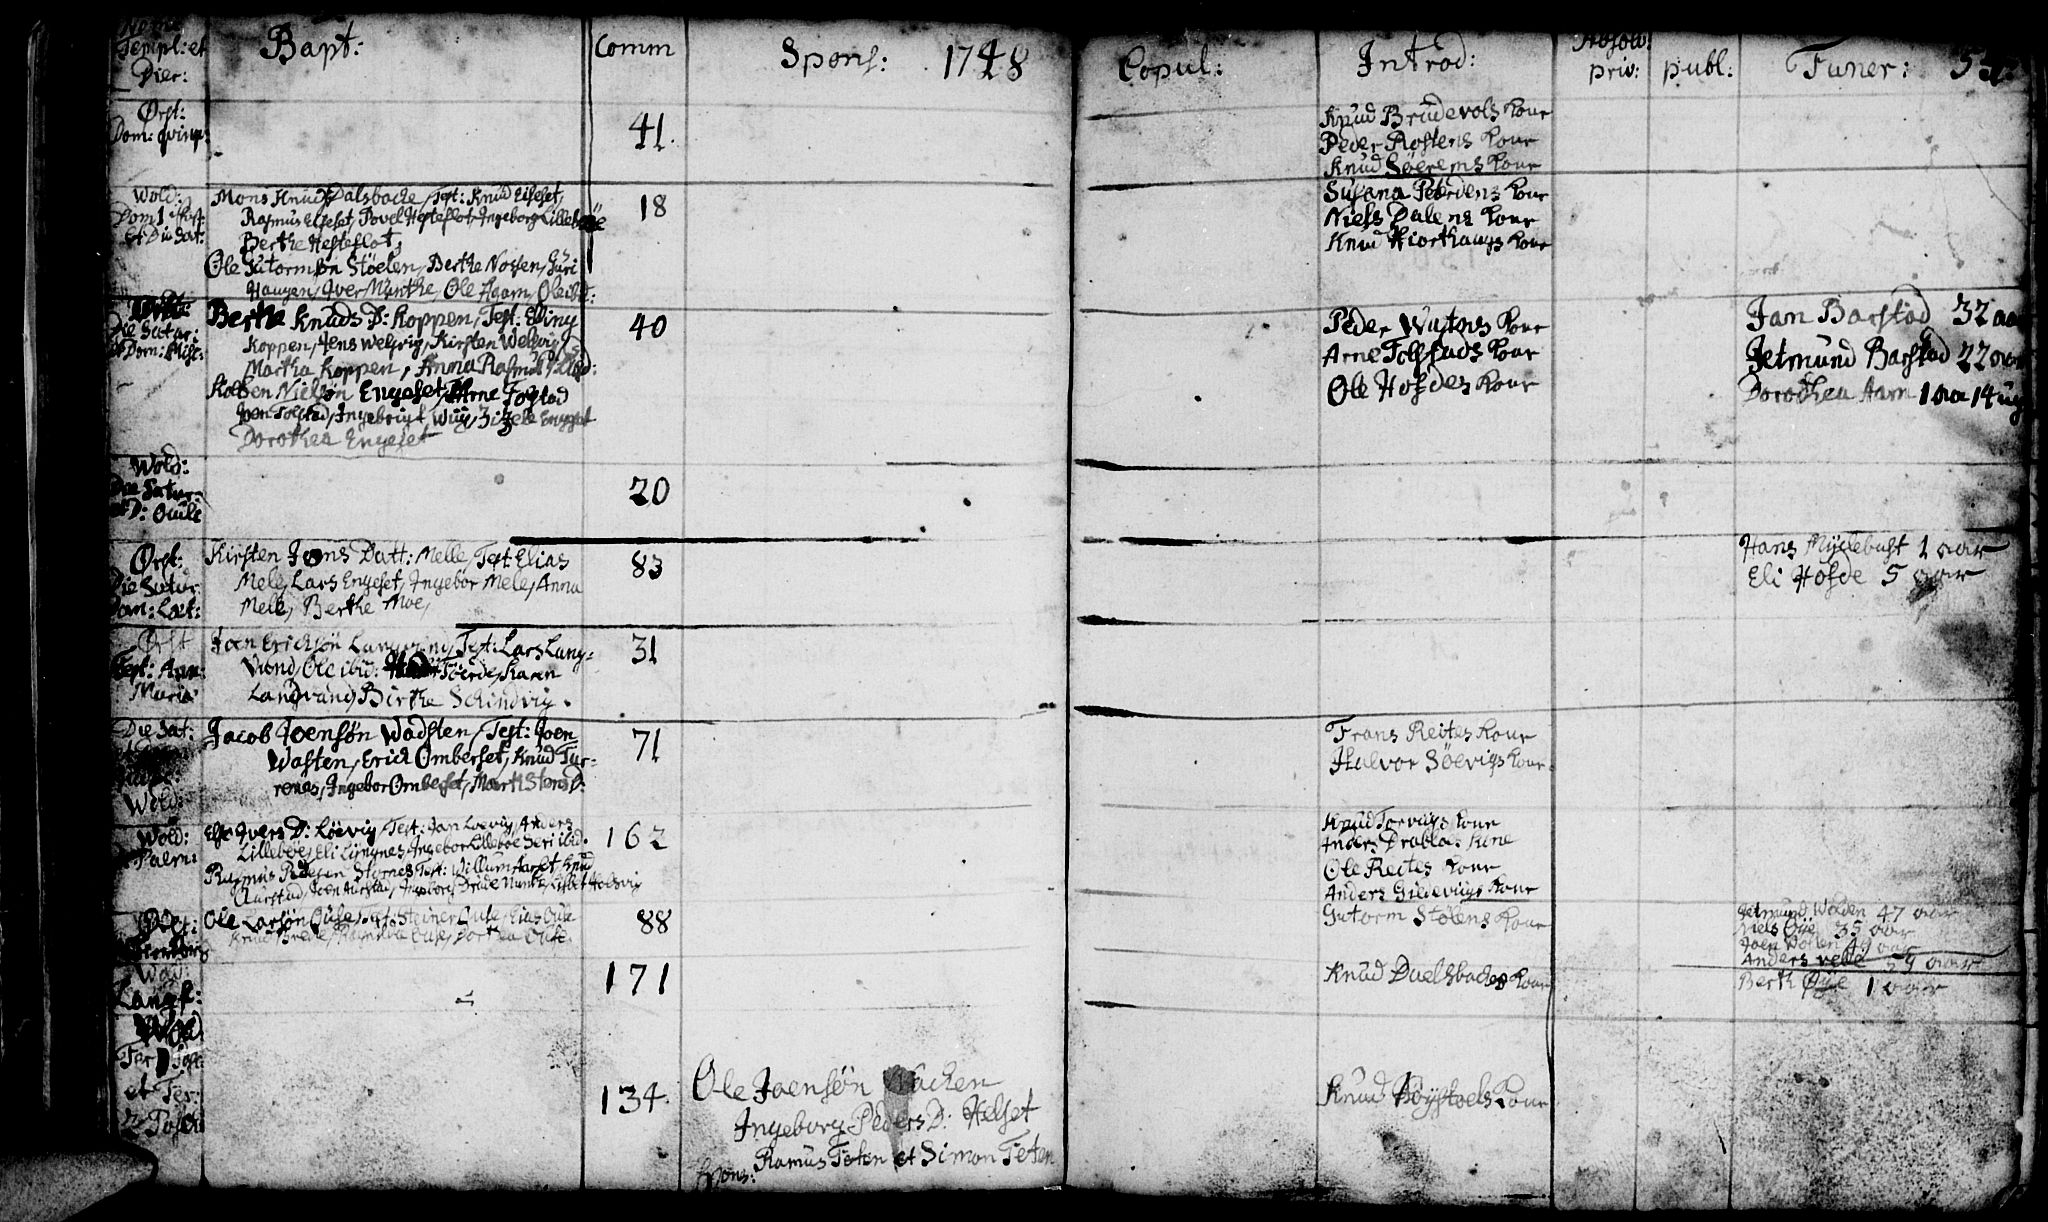 Templ: et
Dier:
Bapt:
Comm
Spons:
1748
Copul:
Introd:
Absolu:
priv:
publ:
Funer:
Ørst:
Dom: qvinq:
41.
Knud Brudevols Kone
Peder Rostens Kone
Knud Søerems Kone
Wold:
Dom 1
et Die Sat:
Mons Knuds Dalsbacke, Test: Knud Eiheset,
Rasmus Elseset, Povel Hesteflot, Ingeborg Lilleboe
Berthe Hesteflot,
Ole Gutormsøn Støelen, Berthe Nossen, Guri
Haugen, Iver Mørthe, Ole Haam, Ole ibid:
18
Susana Peerdens Kone
Niels Dalens Kone
Knud Hiorthaugs Kone
Die Satur:
et Dom: Mise:
Berthe Knuds D: Koppen, Test: Eliny
Koppen, Jens Welsvig, Kirsten Welsvig,
Martha Koppen, Anna Rasmus
Kolben Nielsøn Engeset, Arne Tolstad
Joen Tolstad, Ingebrigt Wiig, Zizele Engeset
Dorothea Engeset
40
Peder Watnes Kone
Arne Tolstads Kone
Ole Hofdes Kone
Jan Barstad 32 aar
Jetmund Barstad 22 aar
Dorothea Aam 1 aar 14 ug
Wold:
Die Satur:
et D: Oculi
20
Ørst:
Die Satur
Dom: Læt:
Kirsten Jons Datt: Melle, Test Elias
Mele, Lars Engeset, Ingebor Mele, Anna
Mele, Berthe Moe,
83
Hans Myclebust 1 aar
Eli Hofde 5 aar
Ørst
Fest: Ann:
Maria
Joen Erichsøn Langvand, Test: Lars Lang-
vand, Ole ibid: Toerde, Karen
Landvand, Birthe Schindvig.
31
Die Sat:
Wold:
Jacob Joensøn Wadsten, Test: Joen
Wasten, Erich Omberset, Knud Fur-
renes, Ingebor Omberset, Mart Stens D:
71
Frans Reites Kone
Halvor Søevigs Kone
Wold:
Palm:
Else Ivers D: Løevig, Test: Jan Loevig, Anders
Lilleboe, Eli Limynes, Ingebor Lilleboe Seri ibid.
Rasmus Pedersen Styrnes Test: Willum Aarset Knud
Aarstad, Joen Aarstad, Ingeborg
162
Knud Torvigs Kone
Anders Drabløs Kone
Ole Reites Kone
Anders Gildevigs Kone
Ole Larsøn Ouse, Test: Steiner Ouse, Elias Ouse
Knud Brede, Ragnilda Ouse, Dorthea Ouse.
88
Gutorm Støelens Kone
Jetmund Wolden 47 aar
Niels Øye 35 aar
Joen Wolden 49 aar
Anders Velle 59 aar
Wold:
Langf:
171
Knud Dalsbackes Kone
Berth Øye 1 aar
Wold
et Fer:
2 Pasch
134.
Ole Joensøn Backen
Ingeborg Peders D: Helset
Spons: Rasmus Teten et Simon Teten
Knud Høystoels Kone